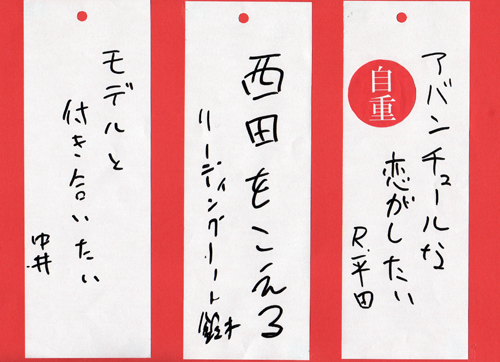 アバンチュールな
恋がしたい
R.平田
自重
西田をこえる
リーディングノート 鈴木
モデルと
付き合いたい
中井